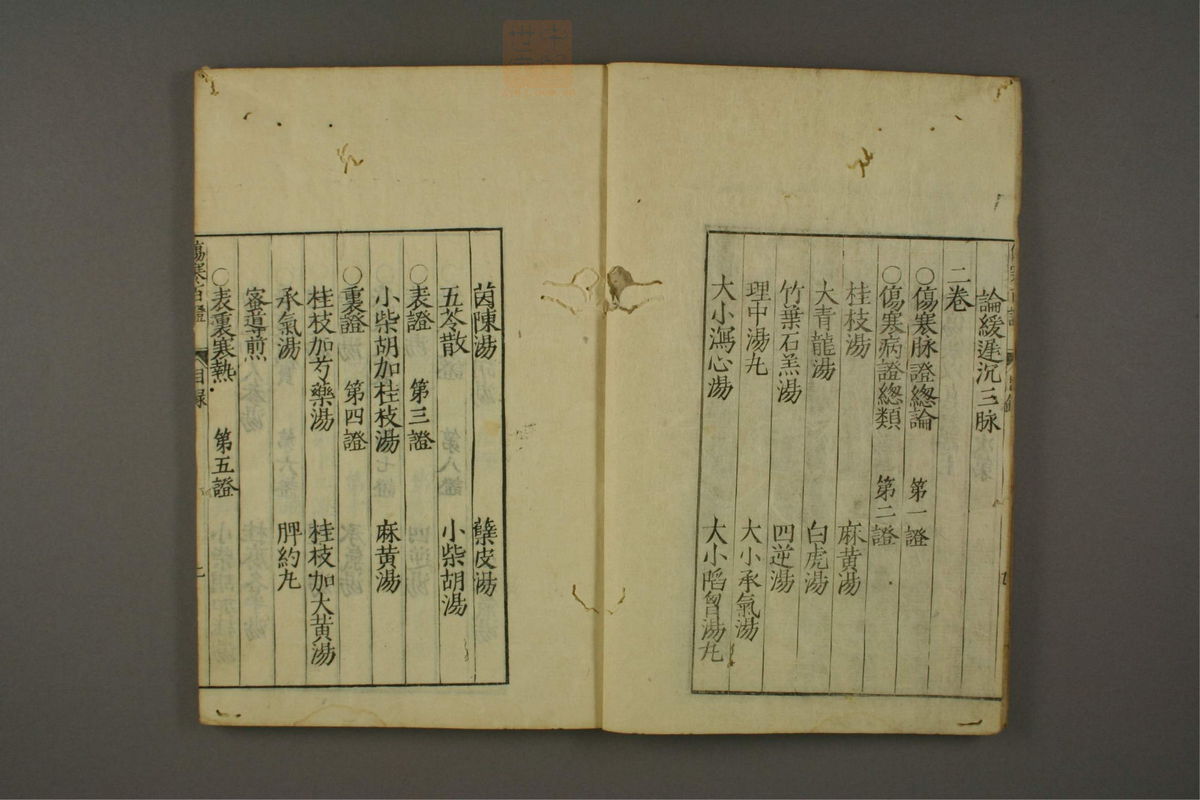 論緩遲沉三脉
二卷
〇傷寒脉證總論 第一證
〇傷寒病證總類 第二證
桂枝湯 麻黄湯
大青龍湯 白虎湯
竹葉石羔湯 四逆湯
理中湯丸 大小承氣湯
大小瀉心湯 大小陷胷湯丸
茵陳湯 蘗皮湯
五苓散 小柴胡湯
〇表證 第三證
小柴胡加桂枝湯 麻黄湯
〇裏證 第四證
桂枝加芍藥湯 桂枝加大黄湯
承氣湯 脾約丸
蜜導煎
〇表裏寒熱 第五證
傷寒百證 目録